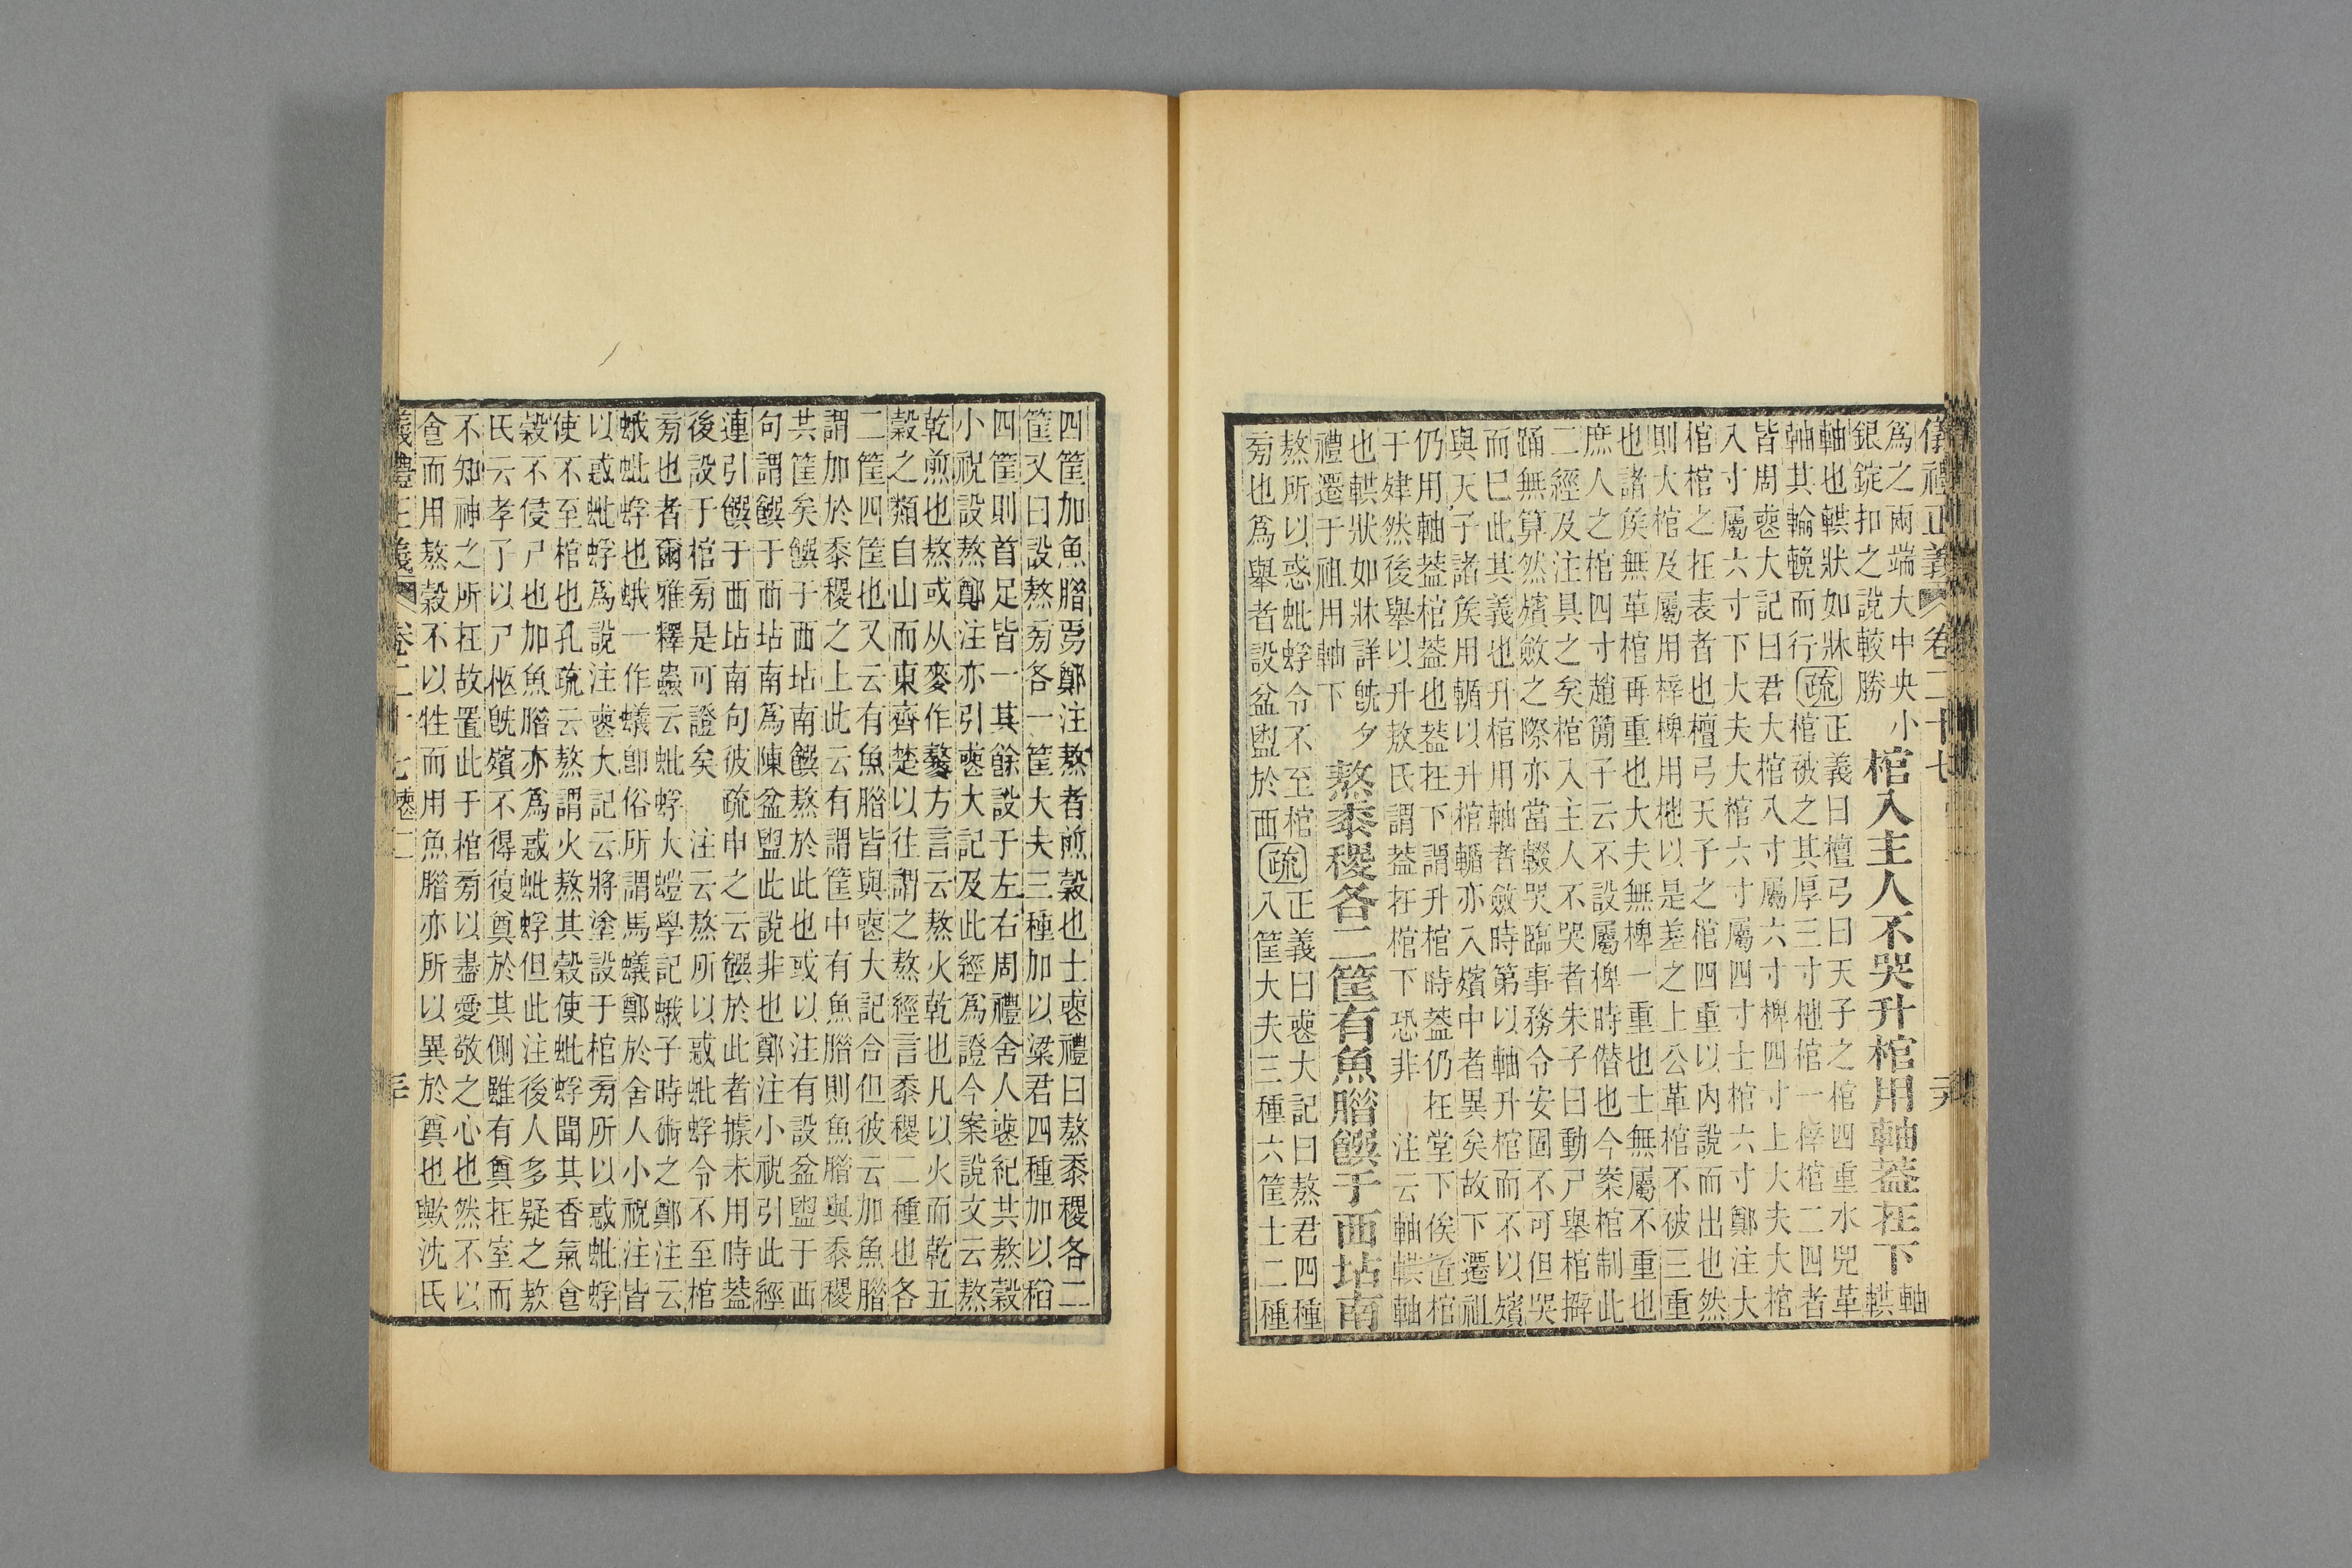 儀禮正義 卷二十七
爲之兩端大中央小
銀錠扣之說較勝
棺入主人不哭升棺用軸蓋在下
軸
輁
軸也輁狀如牀
軸其輪輓而行
疏
正義曰檀弓曰天子之棺四重水兕革
棺被之其厚三寸杝棺一梓棺二四者
皆周喪大記曰君大棺八寸屬六寸椑四寸上大夫大棺
八寸屬六寸下大夫大棺六寸屬四寸士棺六寸鄭注大
棺棺之在表者也檀弓天子之棺四重以內說而出也然
則大棺及屬用梓椑用杝以是差之上公革棺不被三重
也諸侯無革棺再重也大夫無椑一重也士無屬不重也
庶人之棺四寸趙簡子云不設屬椑時僭也今案棺制此
二經及注具之矣棺入主人不哭者朱子曰動尸舉棺擗
踊無算然殯斂之際亦當輟哭臨事務令安固不可但哭
而已此其義也升棺用軸者斂時第以軸升棺而不以殯
與天子諸侯用輴以升棺輴亦入殯中者異矣故下遷祖
仍用軸蓋棺蓋也蓋在下謂升棺時蓋仍在堂下俟置棺
于肂然後舉以升敖氏謂蓋在棺下恐非 注云軸輁軸
也輁狀如牀詳旣夕
禮遷于祖用軸下
熬黍稷各二筐有魚腊饌于西坫南
熬所以惑蚍蜉令不至棺
旁也爲舉者設盆盥於西
疏
正義曰喪大記曰熬君四種
八筐大夫三種六筐士二種
四筐加魚腊焉鄭注熬者煎穀也士喪禮曰熬黍稷各二
筐又曰設熬旁各一筐大夫三種加以粱君四種加以稻
四筐則首足皆一其餘設于左右周禮舍人喪紀共熬穀
小祝設熬鄭注亦引喪大記及此經爲證今案說文云熬
乾煎也熬或从麥作䵅方言云熬火乾也凡以火而乾五
穀之類自山而東齊楚以往謂之熬經言黍稷二種也各
二筐四筐也又云有魚腊皆與喪大記合但彼云加魚腊
謂加於黍稷之上此云有謂筐中有魚腊則魚腊與黍稷
共筐矣饌于西坫南饌熬於此也或以注有設盆盥于西
句謂饌于西坫南爲陳盆盥此說非也鄭注小祝引此經
連引饌于西坫南句彼疏申之云饌於此者據未用時蓋
後設于棺旁是可證矣 注云熬所以惑蚍蜉令不至棺
旁也者爾雅釋蟲云蚍蜉大螘學記蛾子時術之鄭注云
蛾蚍蜉也蛾一作蟻卽俗所謂馬蟻鄭於舍人小祝注皆
以惑蚍蜉爲說注喪大記云將塗設于棺旁所以惑蚍蜉
使不至棺也孔疏云熬謂火熬其穀使蚍蜉聞其香氣食
穀不侵尸也加魚腊亦爲惑蚍蜉但此注後人多疑之敖
氏云孝子以尸柩旣殯不得復奠於其側雖有奠在室而
不知神之所在故置此于棺旁以盡愛敬之心也然不以
食而用熬穀不以牲而用魚腊亦所以異於奠也歟沈氏
義禮正義 卷二十七喪二 三